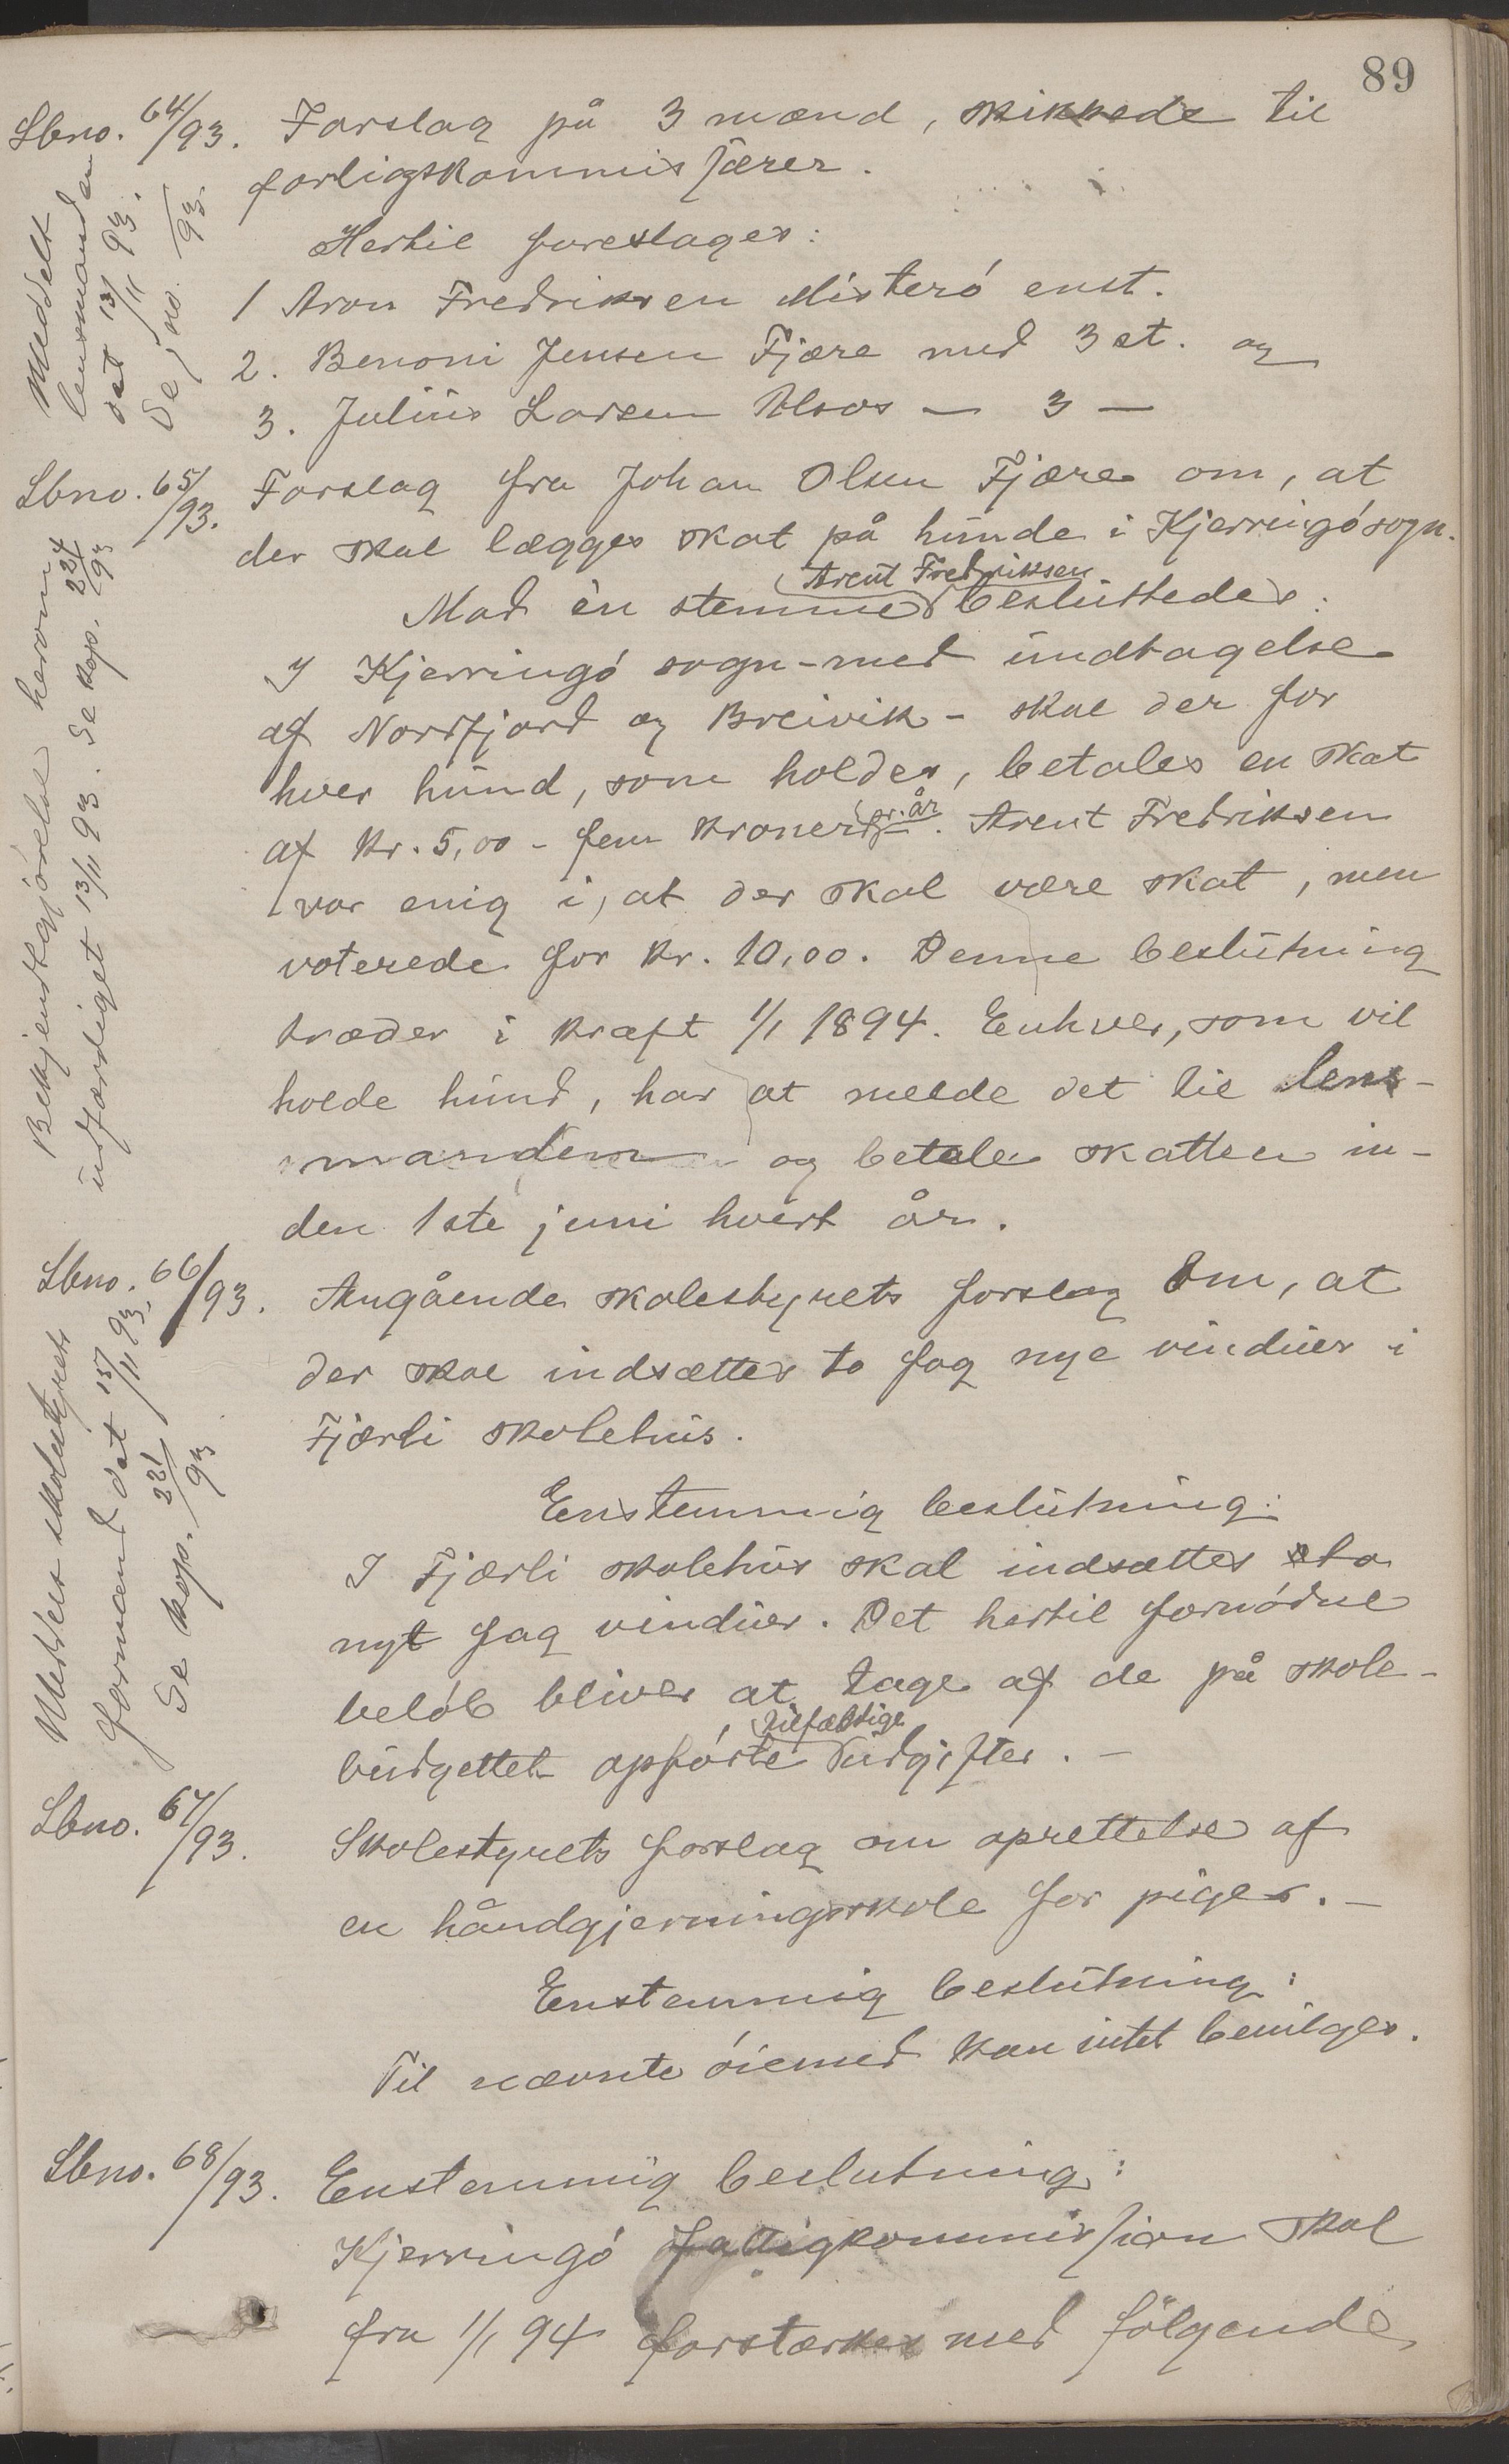 89
Lbno. 64/93. Forslag på 3 mænd, skikkede til
forligskommissærer.
Hertil foreslages:
1 Aron Fredriksen Misterö enst.
2. Benoni Jensen Fjære med 3 st. og
3. Julius Larsen Alsos — 3 —
Meddelt
lensmanden
dat 13/11 93.
Se j no. /93.
Lbno. 65/93. Forslag fra Johan Olsen Fjære om, at
der skal lægges skat på hunde i Kjerringö sogn.
Arent Fredriksen
Mod èn stemme besluttedes:
I Kjerringö sogn - med undtagelse
af Nordfjord og Breivik - skal der for
hver hund, som holdes, betales en skat
af kr. 5,00 - fem kroner pr. år. Arent Fredriksen
var enig i, at der skal være skat, men
voterede for kr. 10,00. Denne beslutning
træder i kraft 1/1 1894. Enhver, som vil
holde hund, har at melde det til lens-
manden og betale skatten in-
den 1ste juni hvert år.
Bekjendtgjörelse herom
udfærdiget 13/11 93. Se kop. 224/93
Lbno. 66/93. Angående skolestyrets forslag om, at
der skal indsættes to fag nye vinduer i
Fjærli skolehus.
Enstemmig beslutning:
I Fjærli skolehus skal indsættes to
nyt fag vinduer. Det hertil fornödne
belöb bliver at tage af de på skole-
budgettet opförte tilfældige udgifter. —
Meddelt skolestyrets
formand dat 15/11 93.
Se kop. 221/93
Lbno. 67/93. Skolestyrets forslag om oprettelse af
en håndgjerningsskole for piger. —
Enstemmig beslutning:
Til nævnte öiemed kan intet bevilges.
Lbno. 68/93. Enstemmig beslutning:
Kjerringö fattigkommission skal
fra 1/1 94 forstærkes med fölgende